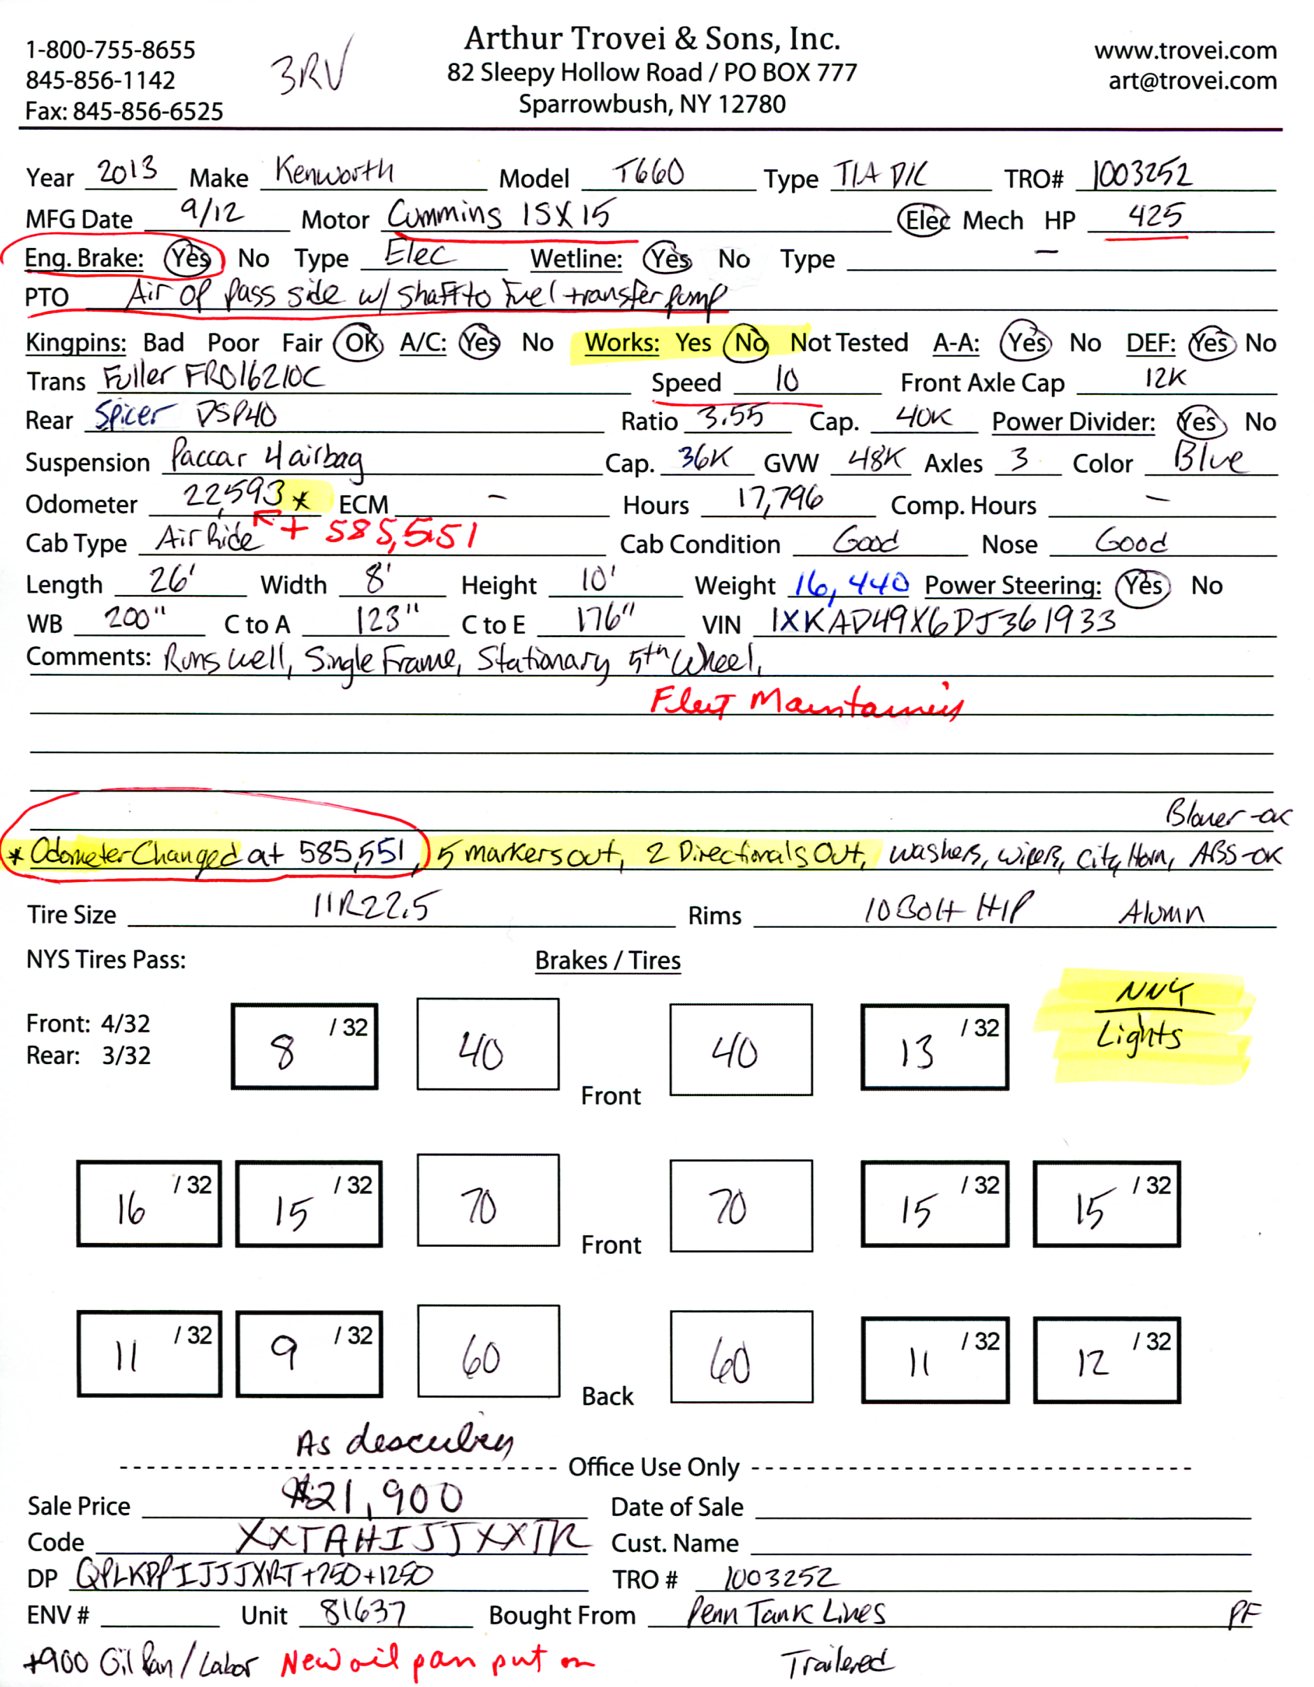 1-800-755-8655
845-856-1142
Fax: 845-856-6525
3RV
Arthur Trovei & Sons, Inc.
82 Sleepy Hollow Road / PO BOX 777
Sparrowbush, NY 12780
www.trovei.com
art@trovei.com
Year 2013 Make Kenworth Model T660 Type T/A D/C TRO# 1003252
MFG Date 9/12 Motor Cummins ISX15 Elec Mech HP 425
Eng. Brake: Yes No Type Elec Wetline: Yes No Type —
PTO Air Op pass side w/ shaft to fuel transfer pump
Kingpins: Bad Poor Fair OK A/C: Yes No Works: Yes No Not Tested A-A: Yes No DEF: Yes No
Trans Fuller FRO16210C Speed 10 Front Axle Cap 12K
Rear Spicer DSP40 Ratio 3.55 Cap. 40K Power Divider: Yes No
Suspension Paccar 4 airbag Cap. 36K GVW 48K Axles 3 Color Blue
Odometer 22,593 * ECM - Hours 17,796 Comp. Hours —
+ 585,551
Cab Type Air Ride Cab Condition Good Nose Good
Length 26' Width 8' Height 10' Weight 16,440 Power Steering: Yes No
WB 200" C to A 123" C to E 176" VIN 1XKAD49X6DJ361933
Comments: Runs well, Single Frame, Stationary 5th Wheel,
Fleet Maintained
Blower-ok
* Odometer Changed at 585,551, 5 markers out, 2 Directionals Out, washers, wipers, city Horn, ABS-ok
Tire Size 11R22.5 Rims 10 Bolt H/P Alumn
NYS Tires Pass:
Brakes / Tires
Front: 4/32
Rear: 3/32
8 /32 40 Front 40 13 /32
NNY
Lights
16 /32 15 /32 70 Front 70 15 /32 15 /32
11 /32 9 /32 60 Back 60 11 /32 12 /32
As described
Office Use Only
Sale Price $21,900 Date of Sale
Code XXTAHIJJXXTR Cust. Name
DP QPLKPPIJJJXRT+750+1250 TRO # 1003252
ENV # Unit 81637 Bought From Penn Tank Lines PF
+900 Oil Pan/Labor New oil pan put on Trailered